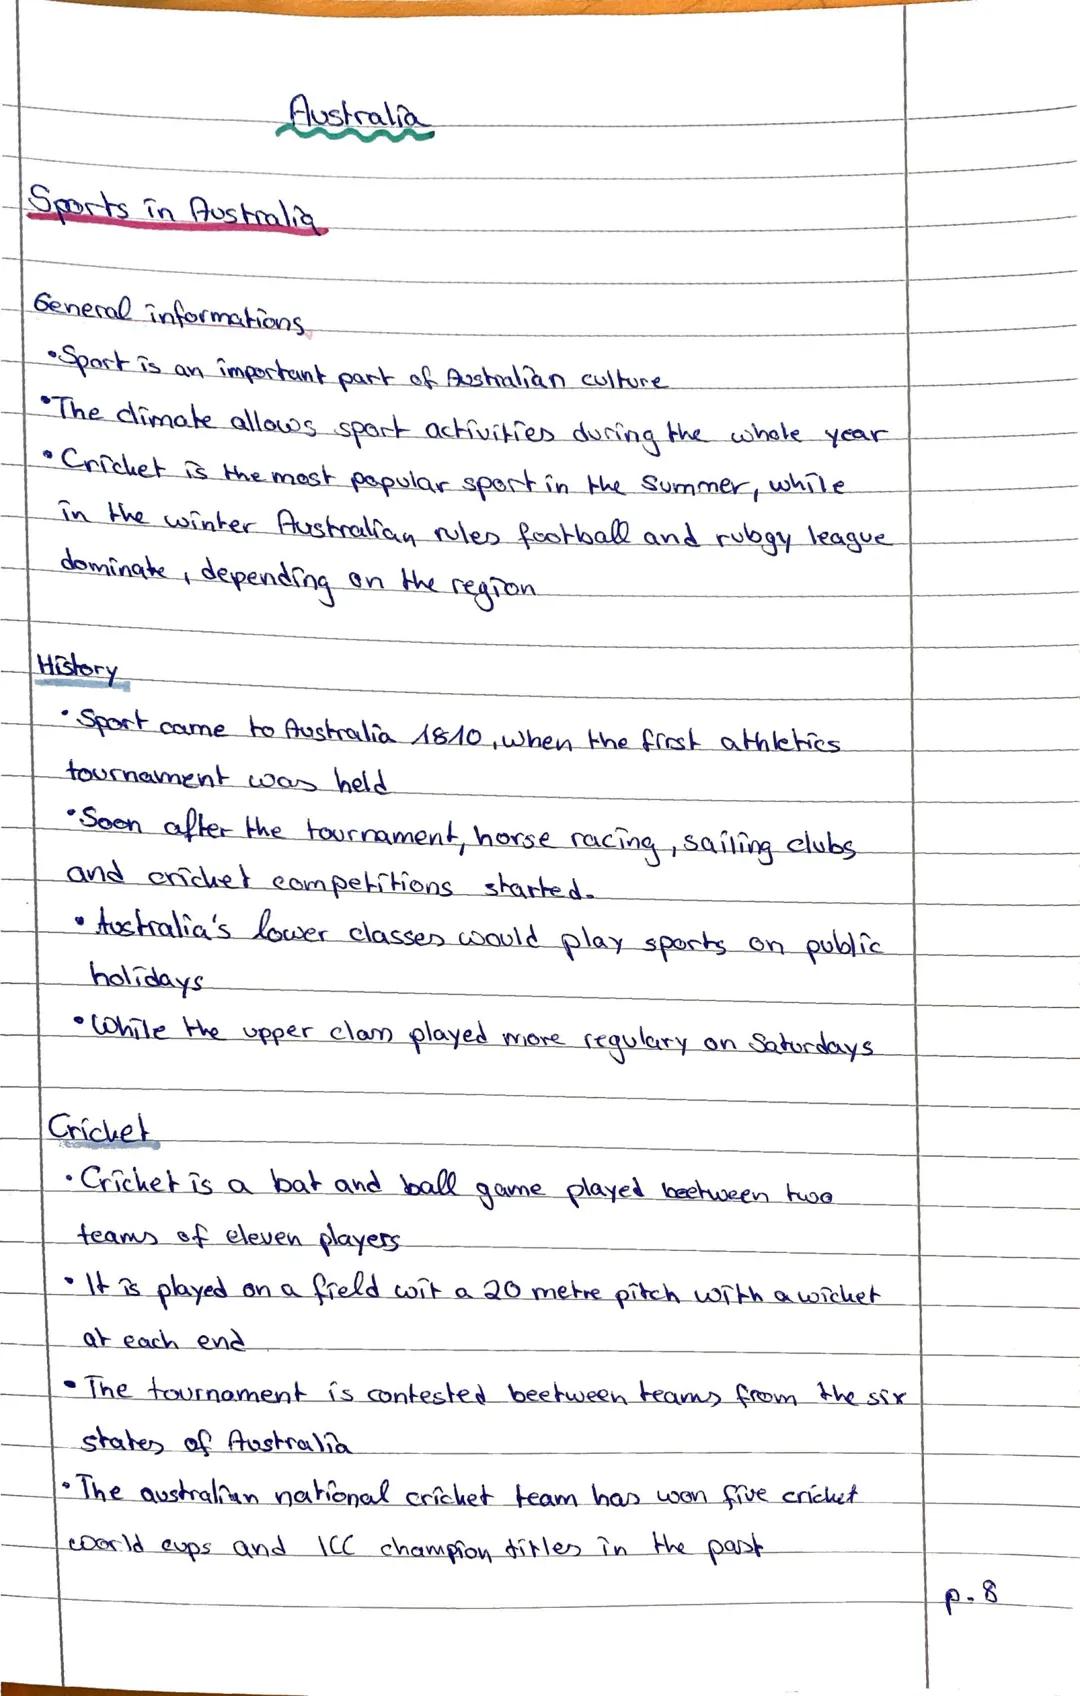 Australia
Sports in Australia
General informations
• Sport is an important part of Australian culture
• The climate allows sport activities during the whole year
• Cricket is the most popular sport in the Summer, while
in the winter Australian rules football and rubgy league
dominate, depending on the region
History
• Sport came to Australia 1810, when the first athletics
tournament was held
• Soon after the tournament, horse racing, sailing clubs
and cricket competitions started.
• Australia's lower classes would play sports on public
holidays
• While the upper class played more regulary on Saturdays
Cricket
• Cricket is a bat and ball game played beetween two
teams of eleven players
• It is played on a field wit a 20 metre pitch with a wicket
at each end
• The tournament is contested beetween teams from the six
states of Australia
• The australian national cricket team has won five cricket
world cups and ICC champion titles in the past
p. 8